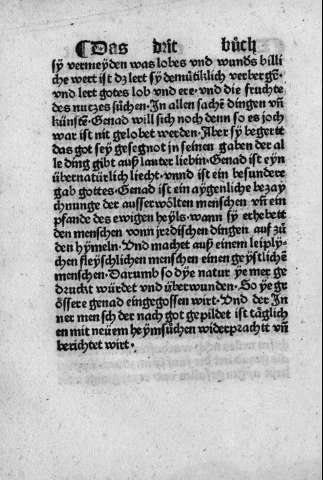 ¶Das drit bůch
sy vermeyden was lobes vnd wunds billi
che wert ist dz lert sy demůtiklich verbergē·
vnd lert gotes lob vnd ere· vnd die fruchte
des nutzes sůchen· In allen sachē dingen vñ
künstē· Genad will sich noch denn so es joch
war ist nit gelobet werden· Aber sy begert
das got sey gesegnot in seinen gaben der al
le ding gibt auß lauter liebin· Genad ist eyn
übernatürlich liecht· vnnd ist ein besundere
gab gottes· Genad ist ein aygenliche bezay
chnunge der ausserwölten menschen vñ ein
pfande des ewigen heyls· wann sy erhebett
den menschen vonn jrdischen dingen auf zů
den hymeln· Vnd machet auß einem leiply-
chen fleyschlichen menschen einen geystlichē
menschen· Darumb so dye natur ye mer ge
druckt würdet vnd überwunden· So ye gr
össere genad eingegossen wirt· Vnd der In
ner mensch der nach got gepildet ist täglich
en mit neüem heymsůchen widerprachtt vñ
berichtet wirt·